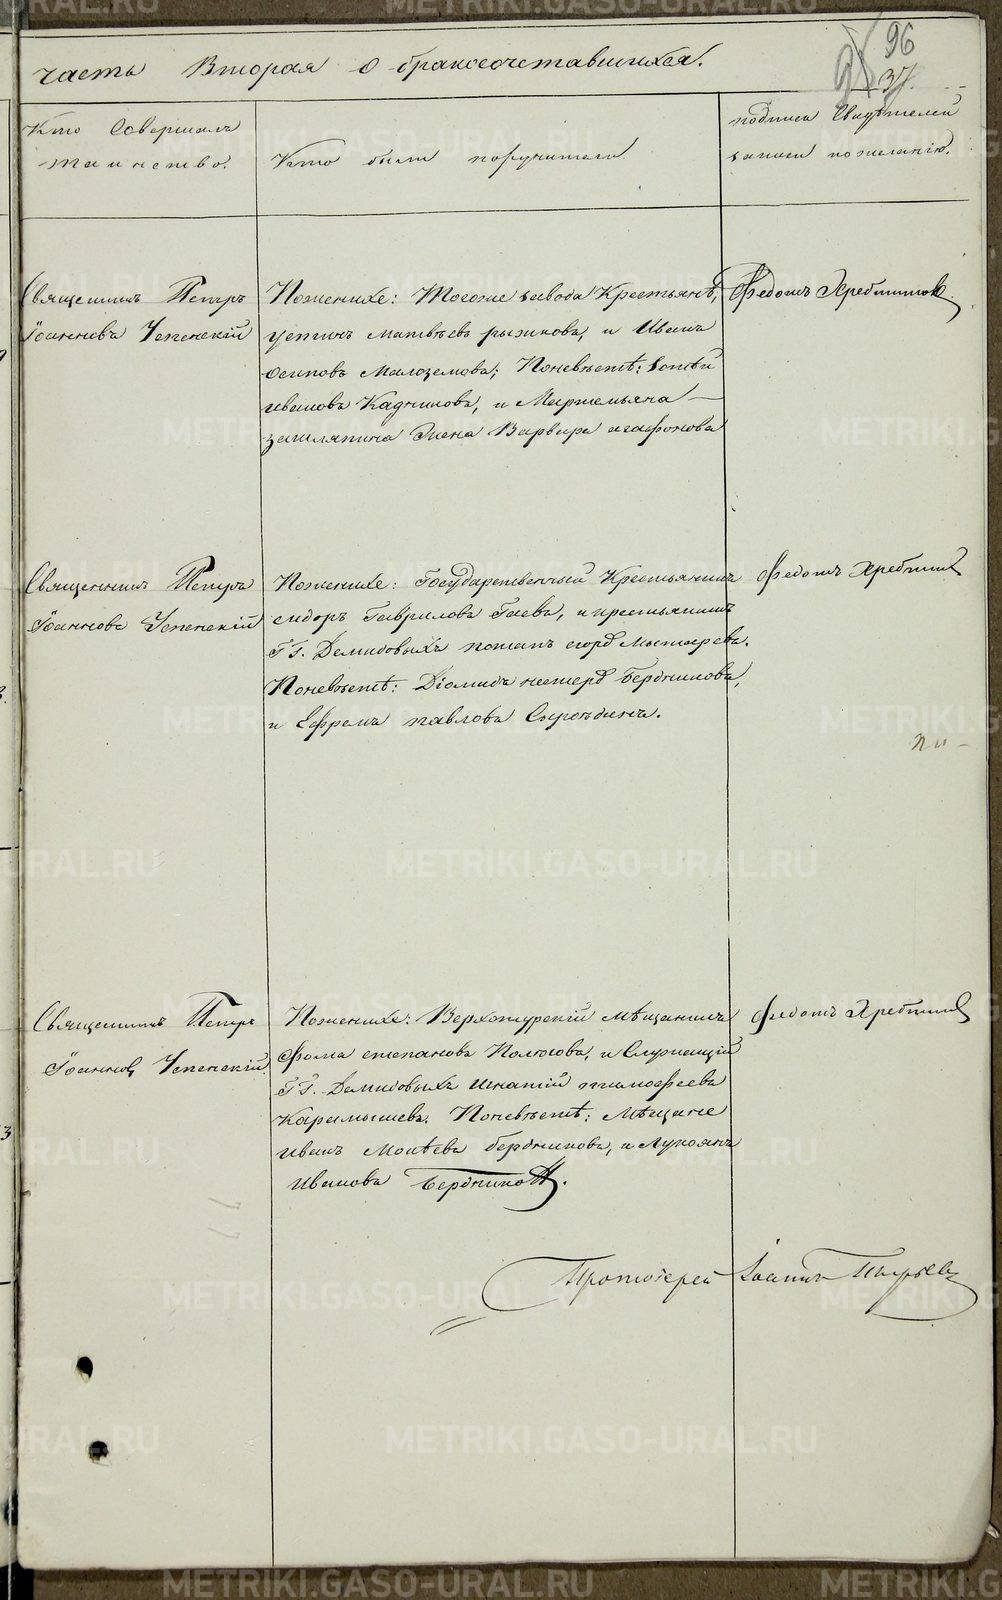 96
37.
часть Вторая о бракосочетавшихся.
Кто Совершалъ
таинство.
Кто были поручители
подписи Свидѣтелей
записи по желанію.
Священникъ Петръ
Іоанновъ Успенскій
По женихе: Того же завода Крестьяне,
устинъ матвѣевъ рыжковъ, и Иванъ
осиповъ Малоземовъ; По невѣсте:
ивановъ Кадниковъ, и Мартемьяна
жена Варвара агафонова
Федотъ Хребтиковъ
Священникъ Петръ
Іоанновъ Успенскій
По женихе: Государственный Крестьянинъ
сидоръ Гавриловъ Гаевъ, и крестьянинъ
Гг. Демидовыхъ потапъ егоровъ Мытаревъ.
По невѣсте: Діомидъ нестеровъ Бердниковъ,
и Ефремъ павловъ Сыроѣдинъ.
Федотъ Хребтиковъ
Священникъ Петръ
Іоанновъ Успенскій
По женихе: Верхотурскій мѣщанинъ
Фома степановъ Полюсовъ, и Служащій
Гг. Демидовыхъ Игнатій тимофеевъ
Карамышевъ. По невѣсте: Мѣщане
иванъ Моисеевъ бердниковъ, и Лукоянъ
Ивановъ Бердниковъ.
Федотъ Хребтиковъ
Протоіерей Іоаннъ Пырьевъ
METRIKI.GASO-URAL.RU